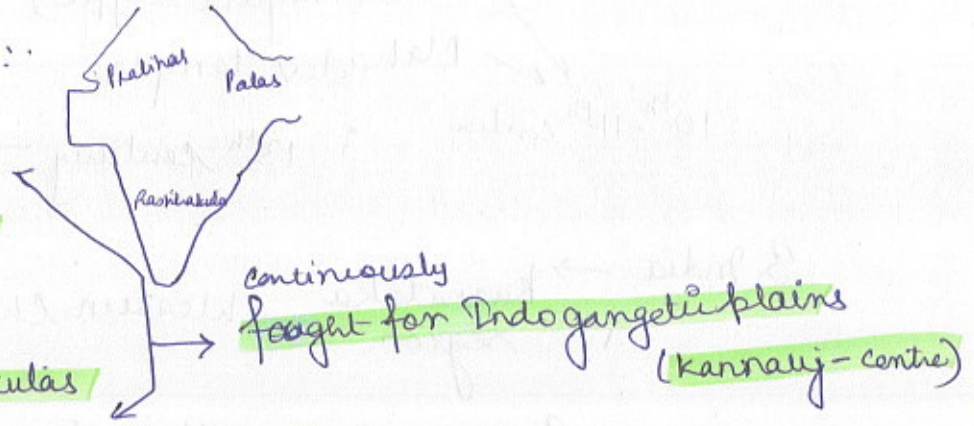 Pratihas
Palas
Rashtrakuda
continuously
fought for Indogangetic plains
(Kannauj - centre)
culas